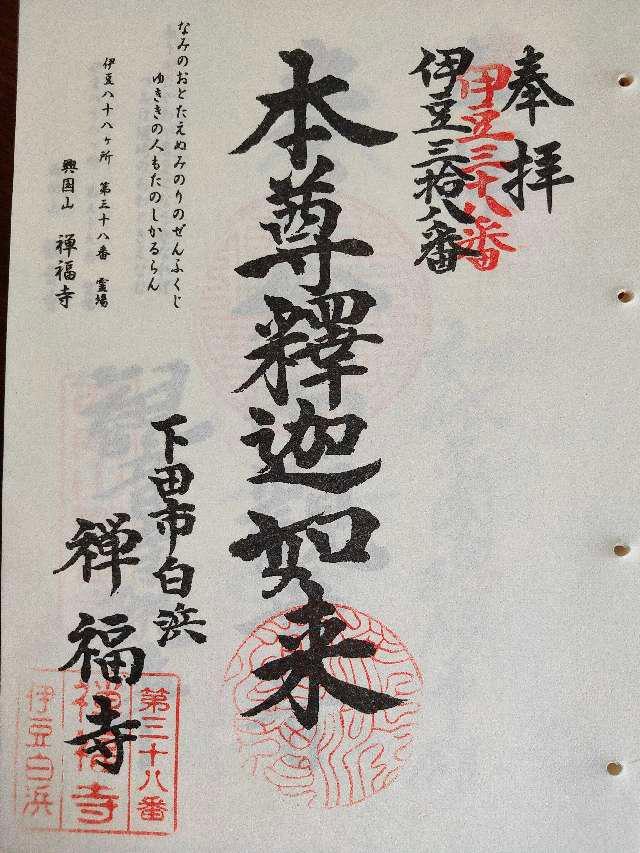 奉拝
伊豆三十八番
伊豆三拾八番
本尊釋迦如来
下田市白浜
禅福寺
なみのおとたえぬみのりのぜんふくじ
ゆききの人もたのしかるらん
伊豆八十八ヶ所 第三十八番 霊場
興国山 禅福寺
第三十八番
禅福寺
伊豆白浜